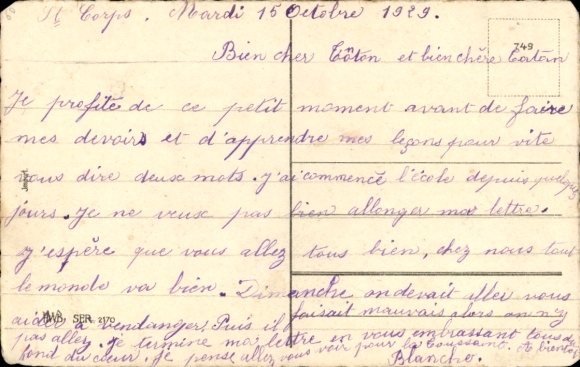 St Corps. Mardi 15 Octobre 1929.
749
Bien cher Tôton et bien chère Tatan
Je profite de ce petit moment avant de faire
mes devoirs et d'apprendre mes leçons pour vite
vous dire deux mots. J'ai commencé l'école depuis quelques
jours. Je ne veux pas bien allonger ma lettre.
J'espère que vous allez tous bien, chez nous tout
le monde va bien. Dimanche on devait aller vous
aider à vendanger. Puis il faisait mauvais alors on n'y
pas allez. Je termine ma lettre en vous embrassant tous du
fond du cœur. Je pense allez vous voir pour la Toussaint. A bientôt
Blanche.
SER. 2170